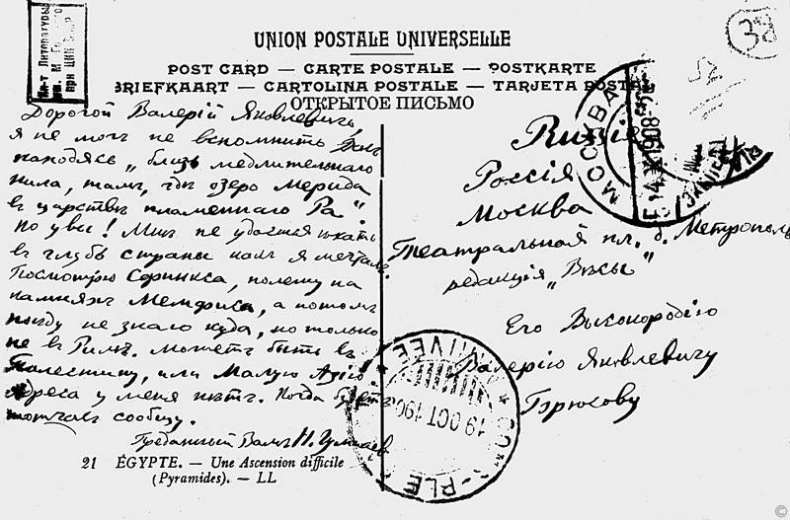 Ин-т Литературы
им. М. Го
при ЦИК
38
UNION POSTALE UNIVERSELLE
POST CARD — CARTE POSTALE — POSTKARTE
BRIEFKAART — CARTOLINA POSTALE — TARJETA POSTAL
ОТКРЫТОЕ ПИСЬМО
Дорогой Валерій Яковлевичъ,
я не могъ не вспомнить Васъ
находясь „близь медлительнаго
Нила, тамъ, гдѣ озеро Мерида
въ царствѣ пламеннаго Ра“.
Но увы! Мнѣ не удается ѣхать
въ глубь страны какъ я мечталъ.
Посмотрю Сфинкса, полежу на
камняхъ Мемфиса, а потомъ
поѣду не знаю куда, но только
не въ Римъ. Можетъ быть въ
Палестину, или Малую Азію.
Адреса у меня нѣтъ. Когда будетъ
тотчасъ сообщу.
Преданный Вамъ Н. Гумилев
21 ÉGYPTE. — Une Ascension difficile
(Pyramides). — LL
Russie
Россія
Москва
Театральная пл. д. Метрополь
редакція „Вѣсы“
Его Высокородію
Валерію Яковлевичу
Брюсову
МОСКВА
1908
19 OCT 190
©